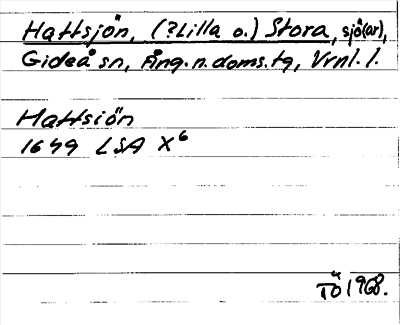 Hattsjön, (?Lilla o.) Stora, sjö(ar),
Gideå sn, Ång. n. doms. tg, Vrnl. l.
Hattsiön
1649 LSA X6
TÖ 1968.